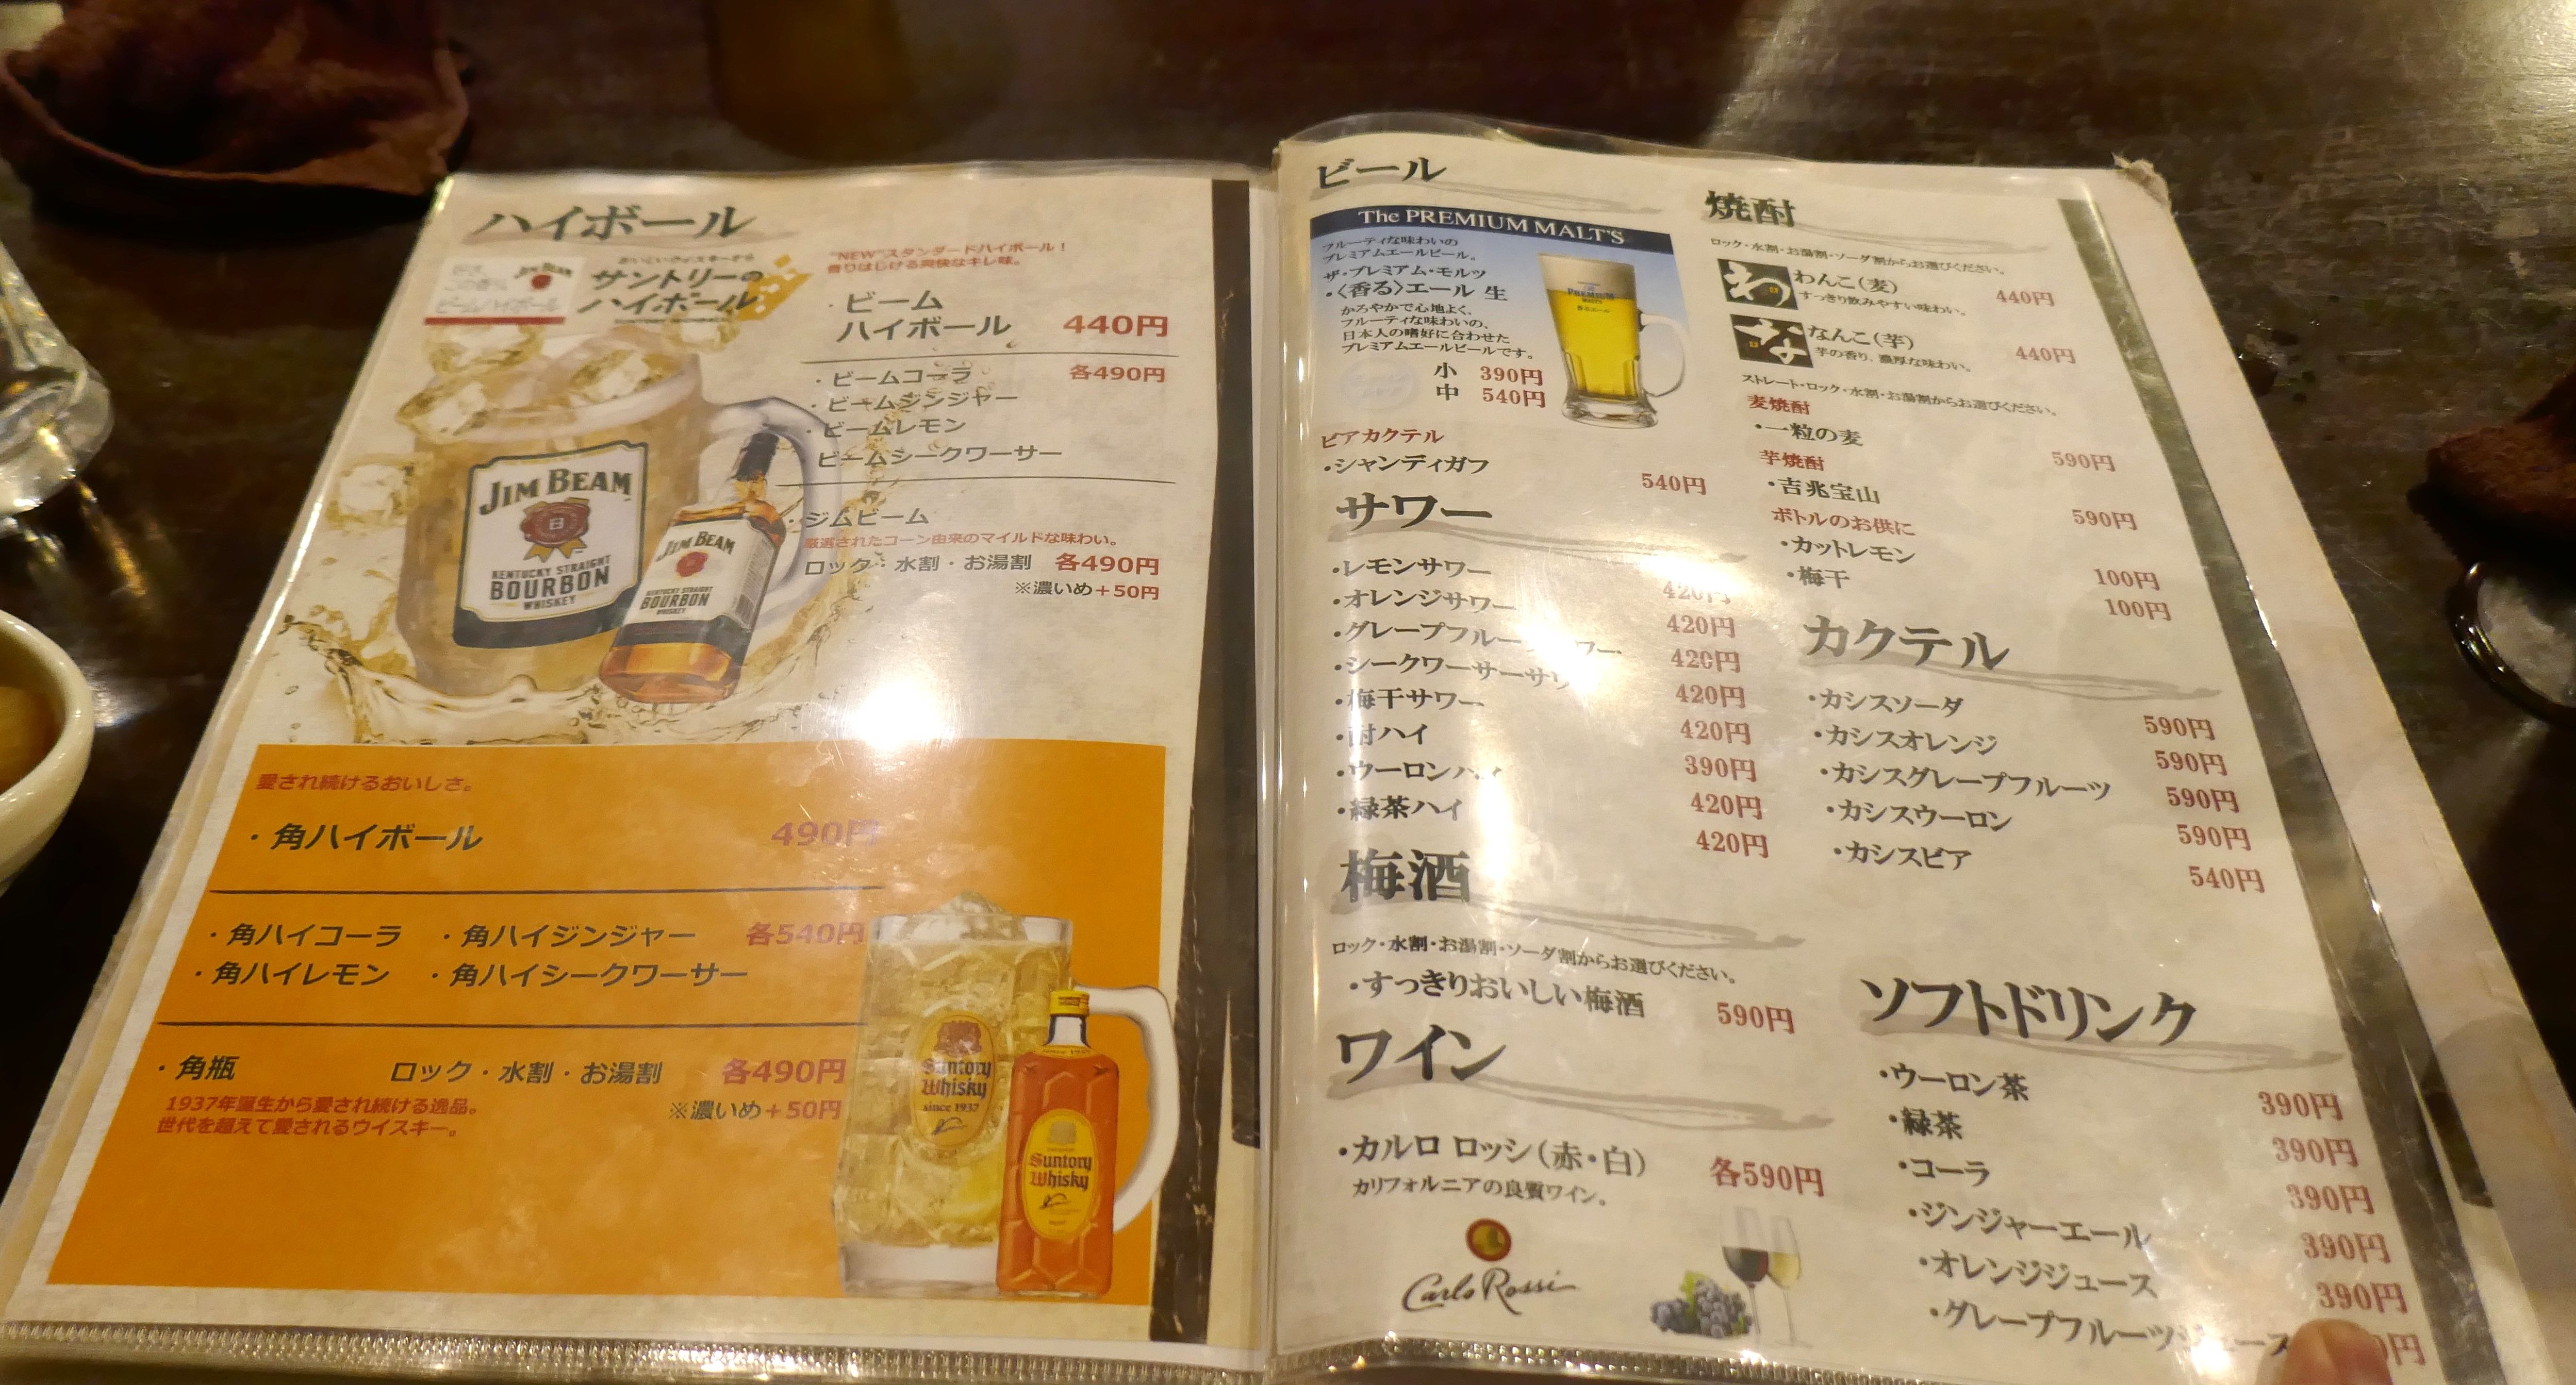 ハイボール
JIM BEAM
ビームハイボール
おいしいウイスキーから
サントリーの
ハイボール
"NEW"スタンダードハイボール！
香りはじける爽快なキレ味。
・ビーム
ハイボール 440円
・ビームコーラ 各490円
・ビームジンジャー
・ビームレモン
ビームシークワーサー
・ジムビーム
厳選されたコーン由来のマイルドな味わい。
ロック・水割・お湯割 各490円
※濃いめ＋50円
JIM BEAM
KENTUCKY STRAIGHT
BOURBON
WHISKEY
JIM BEAM
KENTUCKY STRAIGHT
BOURBON
WHISKEY
愛され続けるおいしさ。
・角ハイボール 490円
・角ハイコーラ ・角ハイジンジャー 各540円
・角ハイレモン ・角ハイシークワーサー
・角瓶 ロック・水割・お湯割 各490円
1937年誕生から愛され続ける逸品。 ※濃いめ＋50円
世代を超えて愛されるウイスキー。
Suntory
Whisky
since 1937
Suntory
Whisky
ビール
The PREMIUM MALT'S
フルーティな味わいの
プレミアムエールビール。
ザ・プレミアム・モルツ
・〈香る〉エール 生
かろやかで心地よく、
フルーティな味わいの、
日本人の嗜好に合わせた
プレミアムエールビールです。
小 390円
中 540円
PREMIUM
MALT'S
ビアカクテル
・シャンディガフ 540円
サワー
・レモンサワー 420円
・オレンジサワー 420円
・グレープフルー ワー 420円
・シークワーサーサワ 420円
・梅干サワー 420円
・酎ハイ 390円
・ウーロンハイ 420円
・緑茶ハイ 420円
梅酒
ロック・水割・お湯割・ソーダ割からお選びください。
・すっきりおいしい梅酒 590円
ワイン
・カルロ ロッシ（赤・白） 各590円
カリフォルニアの良質ワイン。
Carlo Rossi
焼酎
ロック・水割・お湯割・ソーダ割からお選びください。
わ わんこ（麦） 440円
すっきり飲みやすい味わい。
な なんこ（芋） 440円
芋の香り、濃厚な味わい。
ストレート・ロック・水割・お湯割からお選びください。
麦焼酎
・一粒の麦 590円
芋焼酎
・吉兆宝山 590円
ボトルのお供に
・カットレモン 100円
・梅干 100円
カクテル
・カシスソーダ 590円
・カシスオレンジ 590円
・カシスグレープフルーツ 590円
・カシスウーロン 590円
・カシスビア 540円
ソフトドリンク
・ウーロン茶 390円
・緑茶 390円
・コーラ 390円
・ジンジャーエール 390円
・オレンジジュース 390円
・グレープフルーツジュース 0円